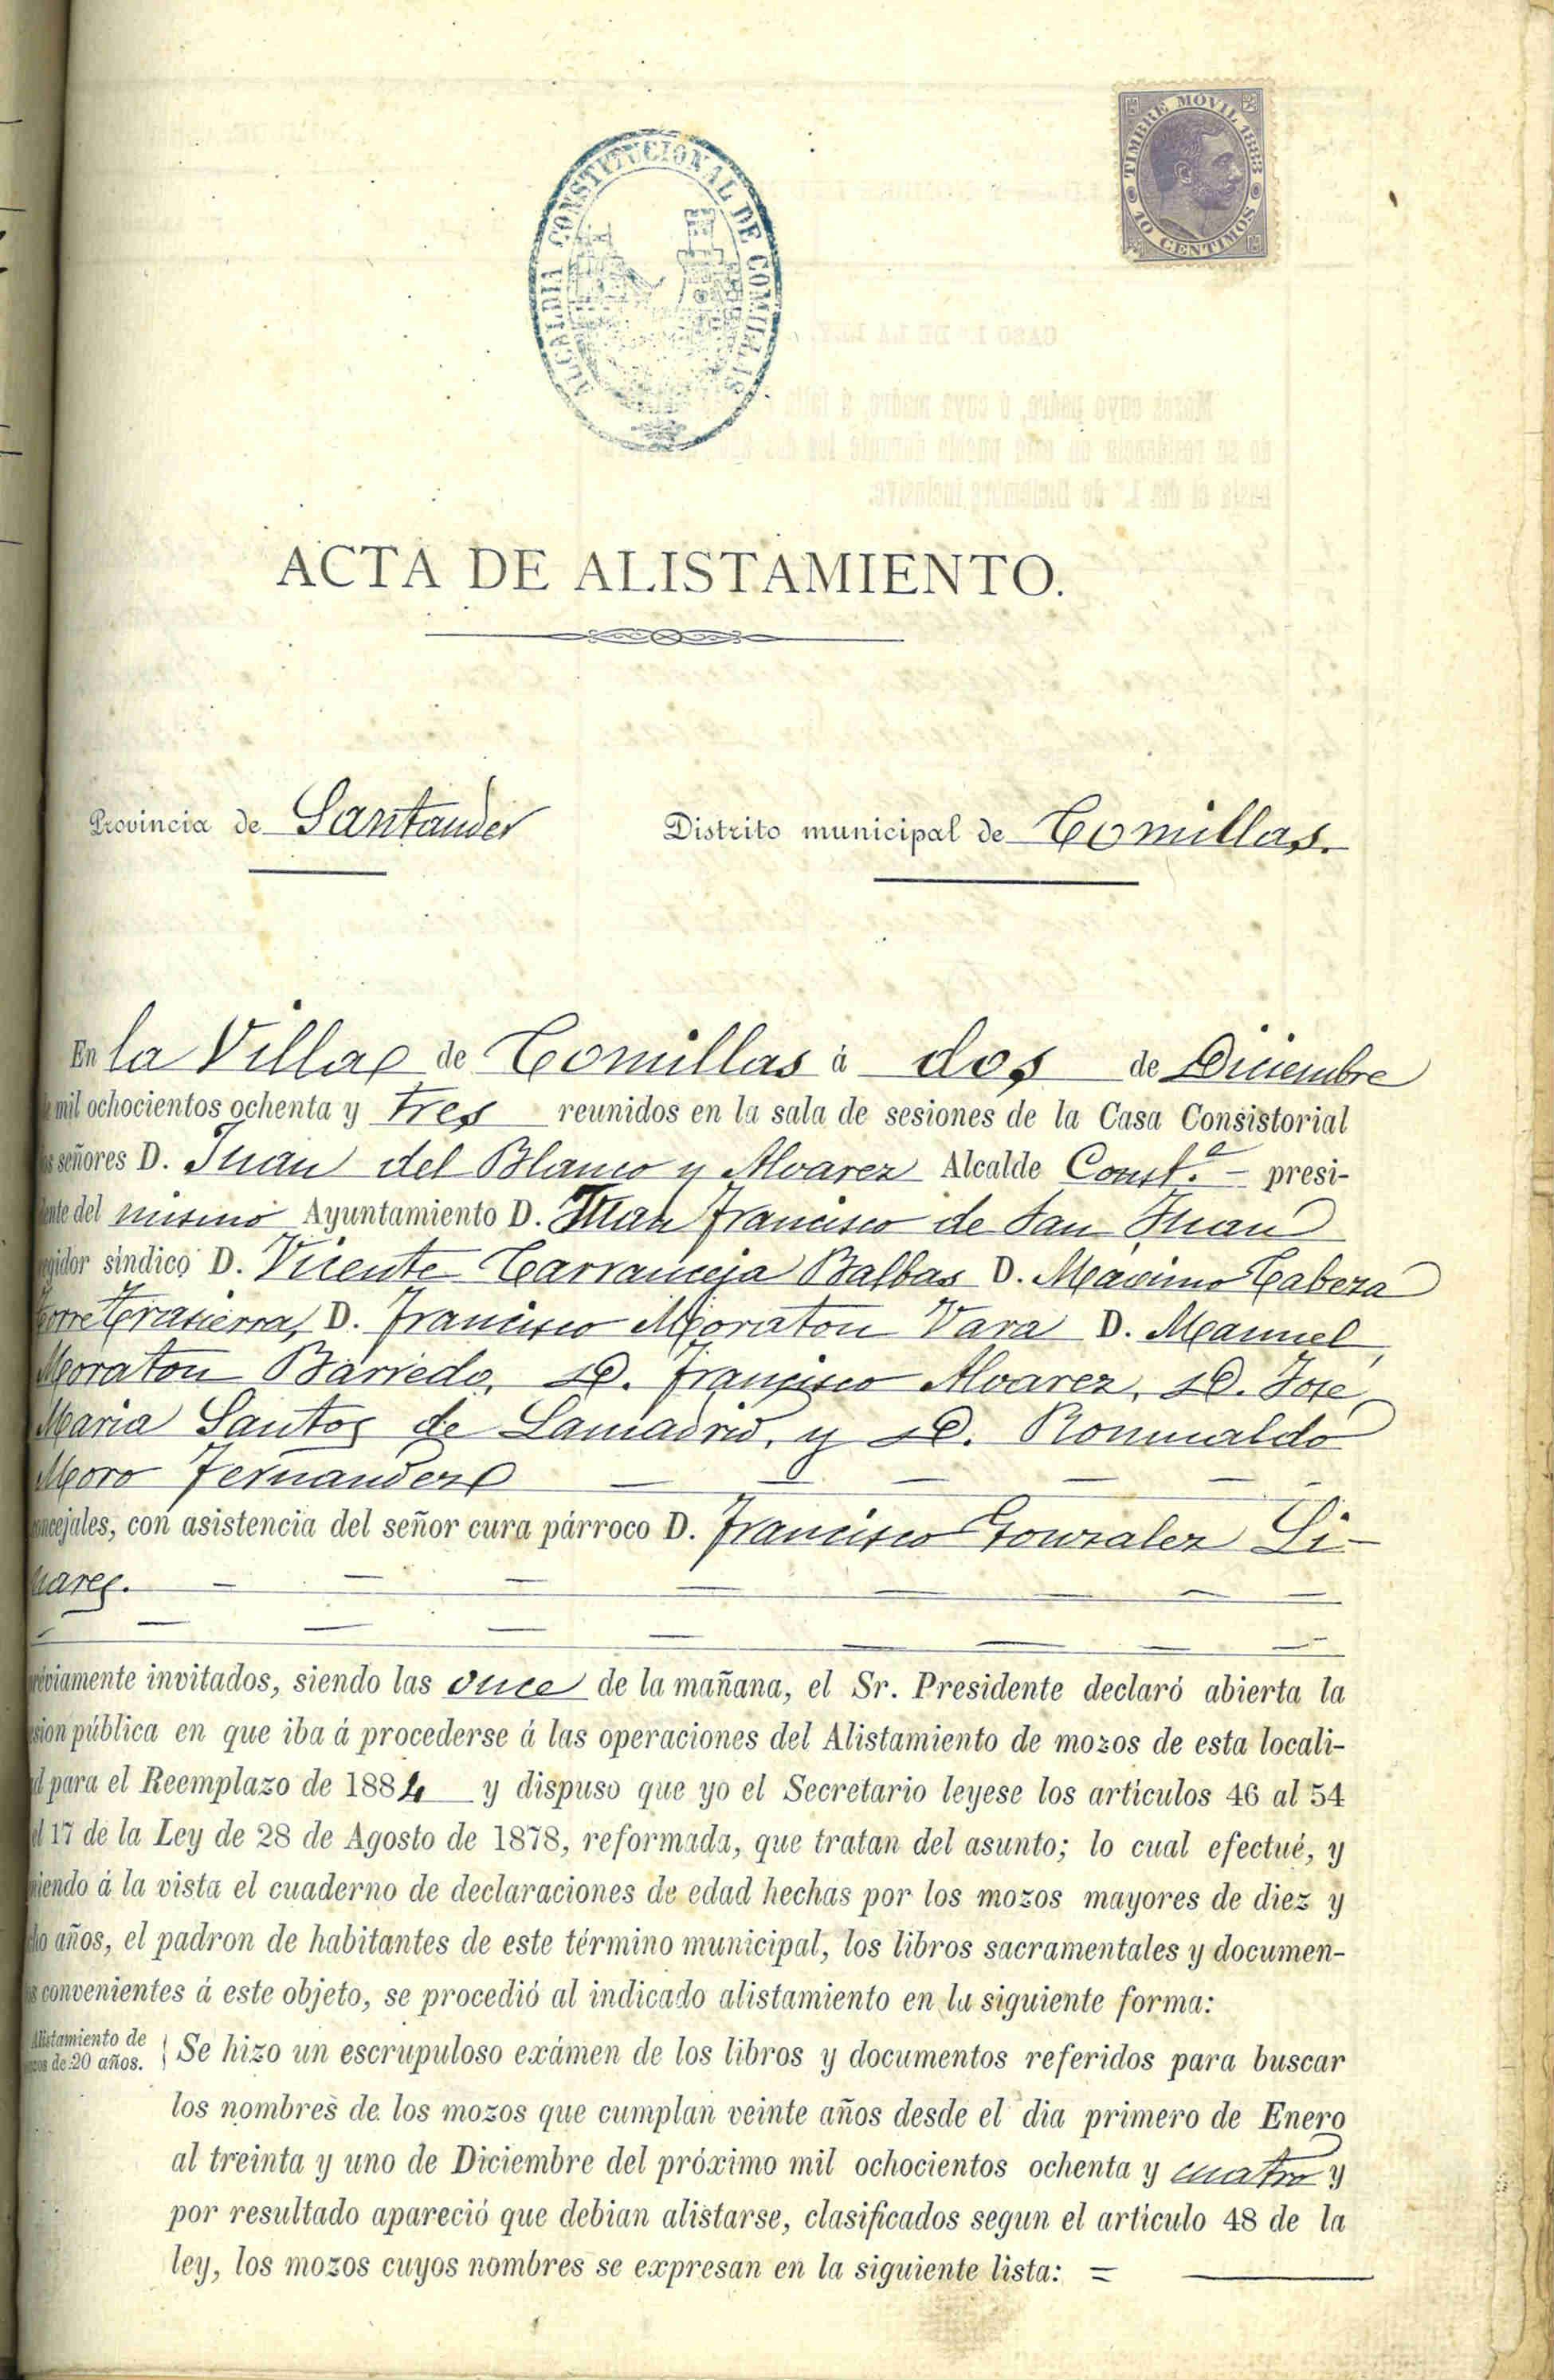 TIMBRE MOVIL 1883
10 CENTIMOS
ALCALDIA CONSTITUCIONAL DE COMILLAS
ACTA DE ALISTAMIENTO.
Provincia de Santander
Distrito municipal de Comillas.
En la Villa de Comillas á dos de Diciembre
mil ochocientos ochenta y tres reunidos en la sala de sesiones de la Casa Consistorial
señores D. Juan del Blanco y Alvarez Alcalde Const.ᵃˡ presi-
dente del mismo Ayuntamiento D. Juan Francisco de San Juan
egidor síndico D. Vicente Carranceja Balbas D. Maximo Cabeza
Torre Terasierra, D. Francisco Moraton Vara D. Manuel
Moraton Barreda, D. Francisco Alvarez, D. Jose
Maria Santos de Lamadrid, y D. Romualdo
Moro Fernandez
ncejales, con asistencia del señor cura párroco D. Francisco Gonzalez Li-
nares.
réviamente invitados, siendo las once de la mañana, el Sr. Presidente declaró abierta la
sion pública en que iba á procederse á las operaciones del Alistamiento de mozos de esta locali-
d para el Reemplazo de 1884 y dispuso que yo el Secretario leyese los artículos 46 al 54
el 17 de la Ley de 28 de Agosto de 1878, reformada, que tratan del asunto; lo cual efectué, y
niendo á la vista el cuaderno de declaraciones de edad hechas por los mozos mayores de diez y
cho años, el padron de habitantes de este término municipal, los libros sacramentales y documen-
s convenientes á este objeto, se procedió al indicado alistamiento en la siguiente forma:
Alistamiento de
ozos de 20 años.
Se hizo un escrupuloso exámen de los libros y documentos referidos para buscar
los nombres de los mozos que cumplan veinte años desde el dia primero de Enero
al treinta y uno de Diciembre del próximo mil ochocientos ochenta y cuatro y
por resultado apareció que debian alistarse, clasificados segun el artículo 48 de la
ley, los mozos cuyos nombres se expresan en la siguiente lista: =